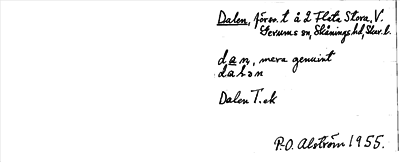 Dalen, fören. t. å 2 Flata Stora, V.
Gerums sn, Skånings hd, Skar. l.
dan, mera genuint
daɦən
Dalen T.ek
P.O. Alström 1955.